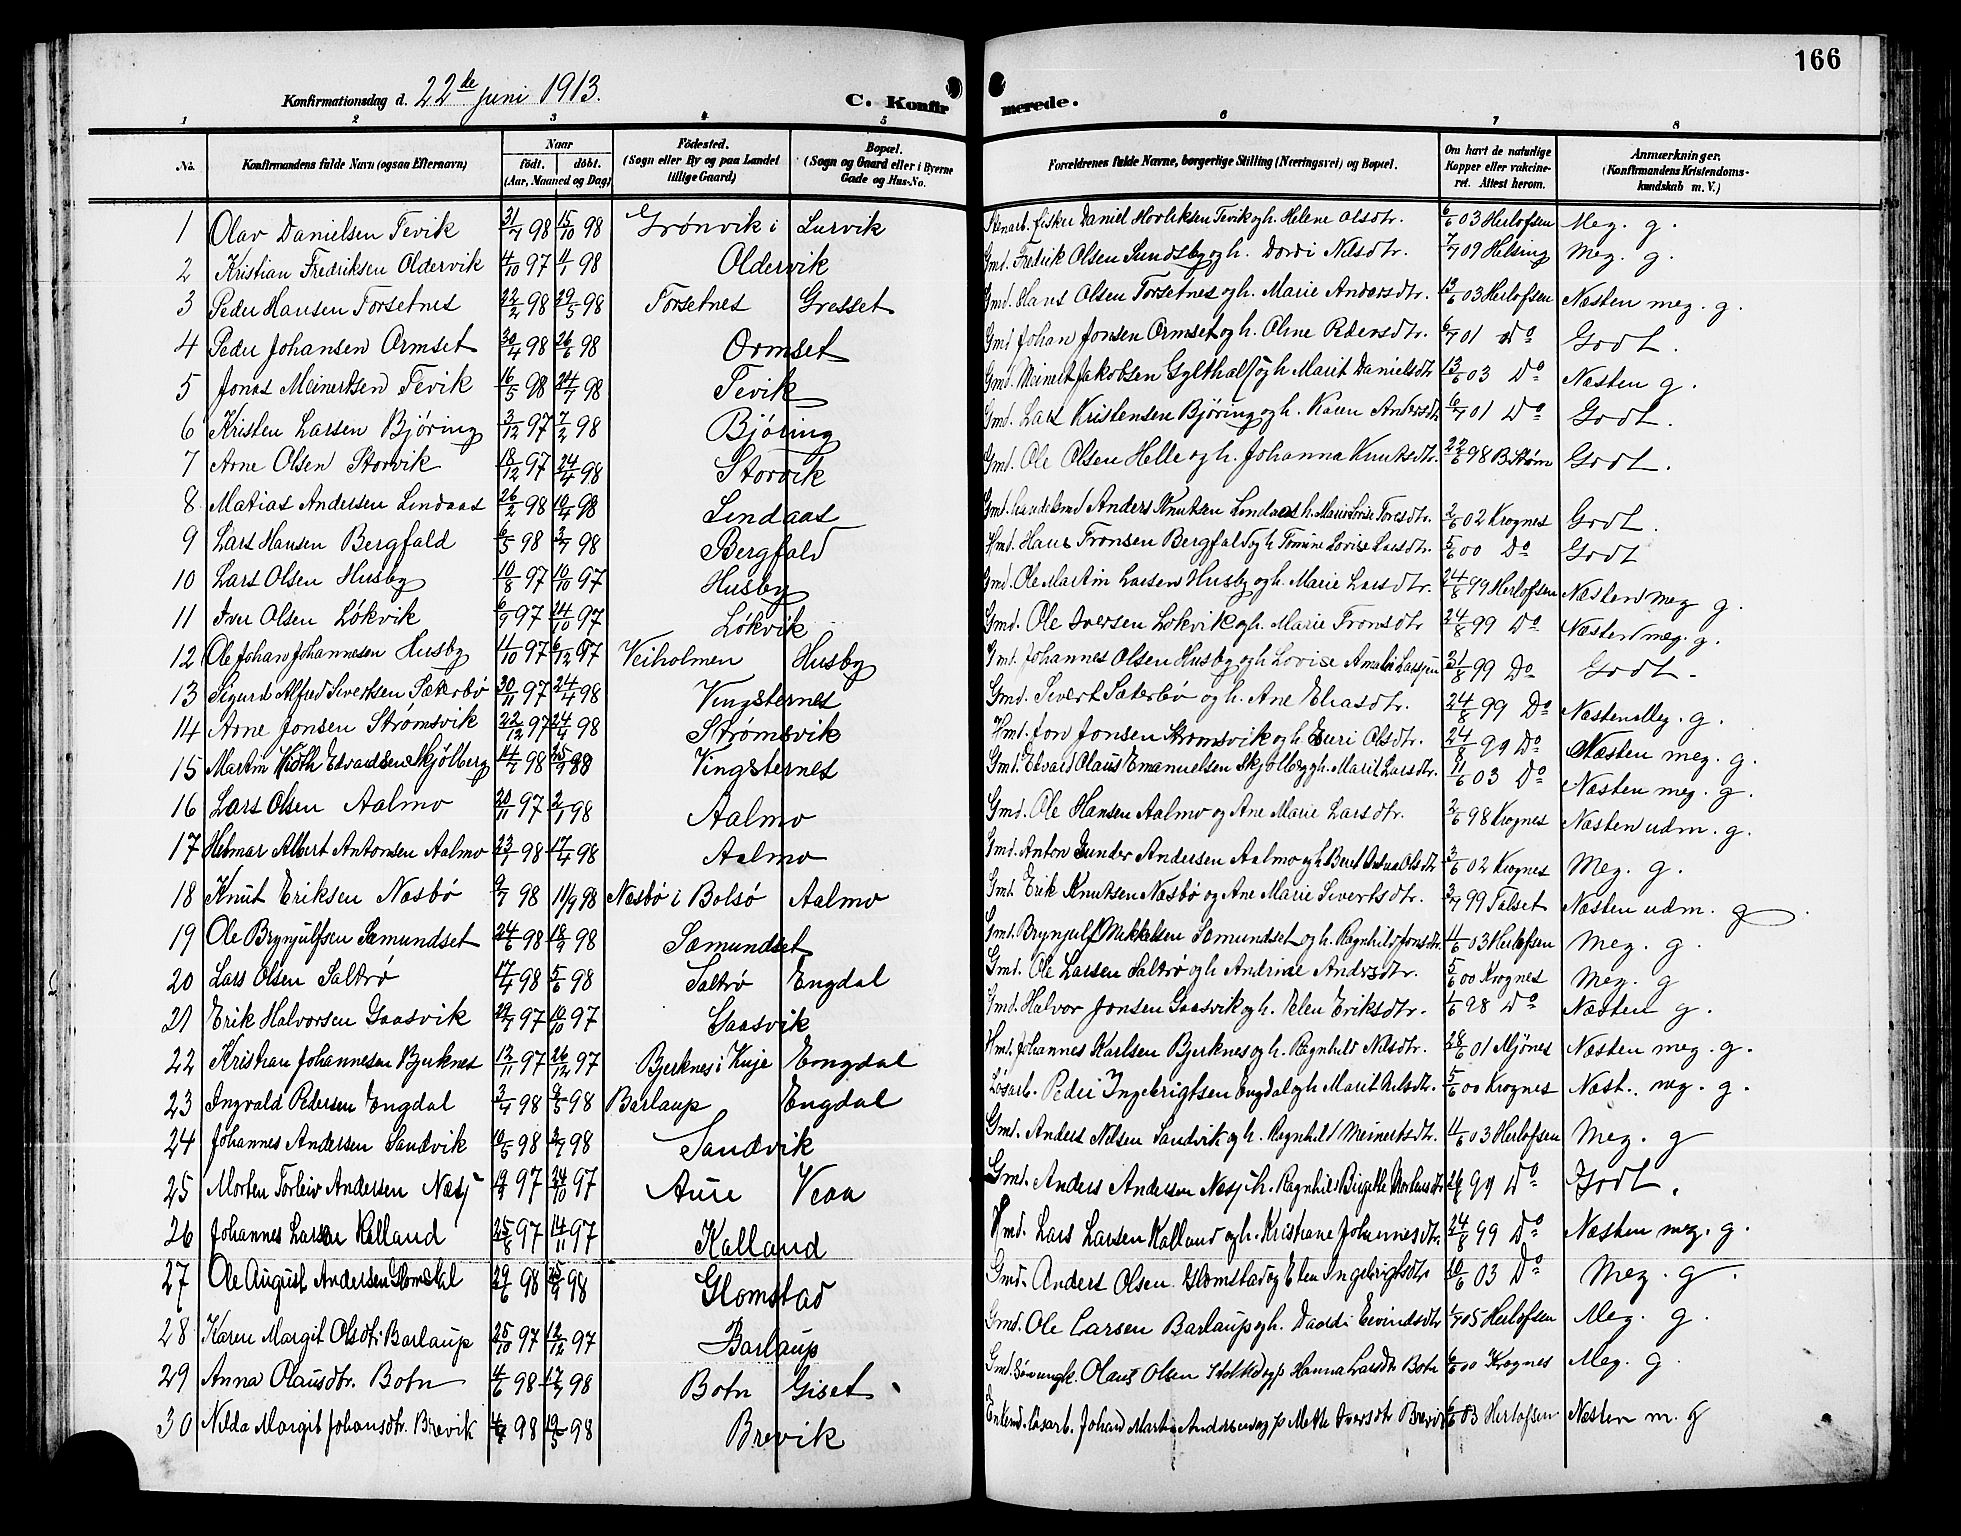 166
Konfirmationsdag d. 22de juni 1913.
C. Konfirmerede.
1 2 3 4 5 6 7 8
No. Konfirmandens fulde Navn (ogsaa Efternavn) Naar født. døbt. (Aar, Maaned og Dag) Fødested. (Sogn eller By og paa Landet tillige Gaard) Bopæl. (Sogn og Gaard eller i Byerne Gade og Hus-No. Forældrenes fulde Navne, borgerlige Stilling (Næringsvei) og Bopæl. Om havt de naturlige Kopper eller vakcineret. Attest herom. Anmærkninger. (Konfirmandens Kristendomskundskab m. V.)
1 Olav Danielsen Tevik 31/7 98 15/10 98 Grønvik i Lurvik Stenarb. fisker Daniel Hovleksen Tevik og h. Helene Olsdtr. 6/6 03 Herlofsen Meg. g.
2 Kristian Fredriksen Oldervik 4/10 97 11/1 98 Oldervik Gmd. Fredrik Olsen Sundsby og h. Dordi Nilsdtr. 7/7 09 Helsing Meg. g.
3 Peder Hansen Forsetnes 22/2 98 29/5 98 Forsetnes Gresset Gmd. Hans Olsen Forsetnes og h. Marie Andersdtr. 13/6 03 Herlofsen Næsten meg. g.
4 Peder Johansen Ormset 30/4 98 26/6 98 Ormset Gmd Johan Jonsen Ormset og h. Oline Pedersdtr. 6/7 01 Do Godt.
5 Jonas Meinertsen Tevik 16/5 98 24/7 98 Tevik Gmd. Meinert Jakobsen Gylthals og h Marit Danielsdtr 13/6 03 Do Næsten g.
6 Kristen Larsen Bjøring 3/12 97 7/2 98 Bjøring Gmd. Lars Kristensen Bjøring og h. Karen Andersdtr. 6/7 01 Do Godt.
7 Arne Olsen Storvik 18/12 97 24/4 98 Storvik Gmd. Ole Olsen Helle og h. Johanna Knutsdtr. 22/6 98 B. Strøm Godt.
8 Matias Andersen Lindaas 26/2 98 10/4 98 Lindaas Gmd. Anders Knutsen Lindaas h. Marie Lovise Toresdtr. 2/6 02 Krognes Godt.
9 Lars Hansen Bergfald 6/5 98 3/7 98 Bergfald Hmd. Hans Fronsen Bergfald og h. Tomine Lovise Larsdtr. 5/6 00 Do Godt
10 Lars Olsen Husby 10/8 97 10/10 97 Husby Gmd. Ole Martin Larsen Husby og h. Marie Larsdtr. 24/8 99 Herlofsen Næsten meg g.
11 Iver Olsen Løkvik 6/9 97 24/10 97 Løkvik Gmd. Ole Iversen Løkvik og h. Marie Fronsdtr 24/8 99 Do Næsten meg. g.
12 Ole Johan Johannesen Husby 11/10 97 6/12 97 Veiholmen Husby Gmd. Johannes Olsen Husby og h Lovise Amalie Larsen 31/8 99 Do Godt.
13 Sigurd Alfred Sivertsen Sæterbø 30/11 97 24/4 98 Vingsternes Gmd. Sivert Sæterbø og h. Ane Eliasdtr. 24/8 99 Do Næsten Meg. g.
14 Arne Jonsen Strømsvik 22/12 97 24/4 98 Strømsvik Hmd. Jon Jonsen Strømsvik og h Guri Olsdtr. 24/8 99 Do Næsten meg. g.
15 Martin Edvardsen Skjølberg 14/7 98 25/9 98 Vingsternes Gmd. Edvard Olaus Emanuelsen Skjølberg og h. Marit Larsdtr. 11/6 03 Do Næsten meg. g.
16 Lars Olsen Aalmo 20/11 97 2/1 98 Aalmo Gmd. Ole Hansen Aalmo og Ane Marie Larsdtr. 2/6 98 Krognes Næsten udm. g.
17 Helmar Albert Antonsen Aalmo 23/1 98 17/4 98 Aalmo Gmd. Anton Gunder Andersen Aalmo og h. Olsdtr 3/6 02 Krognes Meg. g.
18 Knut Eriksen Næsbø 9/7 98 11/9 98 Næsbø i Bolsø Aalmo Gmd. Erik Knutsen Næsbø og Ane Marie Sivertsdtr. 3/7 99 Talset Næsten udm. g.
19 Ole Brynjulfsen Sæmundset 24/6 98 18/9 98 Sæmundset Gmd. Brynjulf Mikkelsen Sæmundset og h. Ragnhild Jonsdtr. 11/6 03 Herlofsen Meg. g.
20 Lars Olsen Saltrø 17/4 98 5/6 98 Saltrø Engdal Gmd. Ole Larsen Saltrø og h Andrine Andrsdtr. 5/6 00 Krognes Meg. g
21 Erik Halvorsen Gaasvik 29/7 97 10/10 97 Gaasvik Gmd. Halvor Jonsen Gaasvik og h. Elen Eriksdtr. 1/6 98 Do Næsten g.
22 Kristian Johannesen Bjerknes 12/11 97 26/12 97 Bjerknes i Kvje Engdal Hmd. Johannes Karlsen Bjerknes og h. Ragnhild Nilsdtr. 28/6 01 Mjønes Næsten meg. g.
23 Ingvald Pedersen Engdal 3/4 98 9/5 98 Barlaup Engdal Løsarb. Peder Ingebrigtsen Engdal og h Marit Nilsdtr. 5/6 00 Krognes Næst. meg. g.
24 Johannes Andersen Sandvik 10/5 98 3/7 98 Sandvik Gmd. Anders Nilsen Sandvik og h. Ragnhild Meinertsdtr. 11/6 03 Herlofsen Meg. g
25 Morten Torleiv Andersen Næsj 97 24/10 97 Aure Veaa Gmd. Anders Andersen Næsj h. Ragnhild Birgitte Mortensdtr 99 Do Godt.
26 Johannes Larsen Kalland 25/8 97 14/11 97 Kalland Hmd. Lars Larsen Kalland og h. Kristiane Johannesdtr. 24/8 99 Do Næsten meg. g.
27 Ole August Andersen Glomstad 29/6 98 25/9 98 Glomstad Gmd. Anders Olsen Glomstad og Elen Ingebrigtsdtr 10/6 03 Do Meg. g.
28 Karen Margit Olsdtr. Barlaup 25/10 97 12/12 97 Barlaup Gmd. Ole Larsen Barlaup og h. Daddi Eivindsdtr 1/7 05 Herlofsen Meg. g.
29 Anna Olausdtr. Botn 4/6 98 17/7 98 Botn Giset Gmd. Olaus Olsen Hanna Larsdtr Botn 6/6 00 Krognes Meg. g.
30 Nilda Margit Johansdtr. Brevik 98 19/5 98 Brevik Enkemd. løsarb. Johan Martin Andersen og Mette Iversdtr Brevik 6/6 03 Herlofsen Næsten m. g